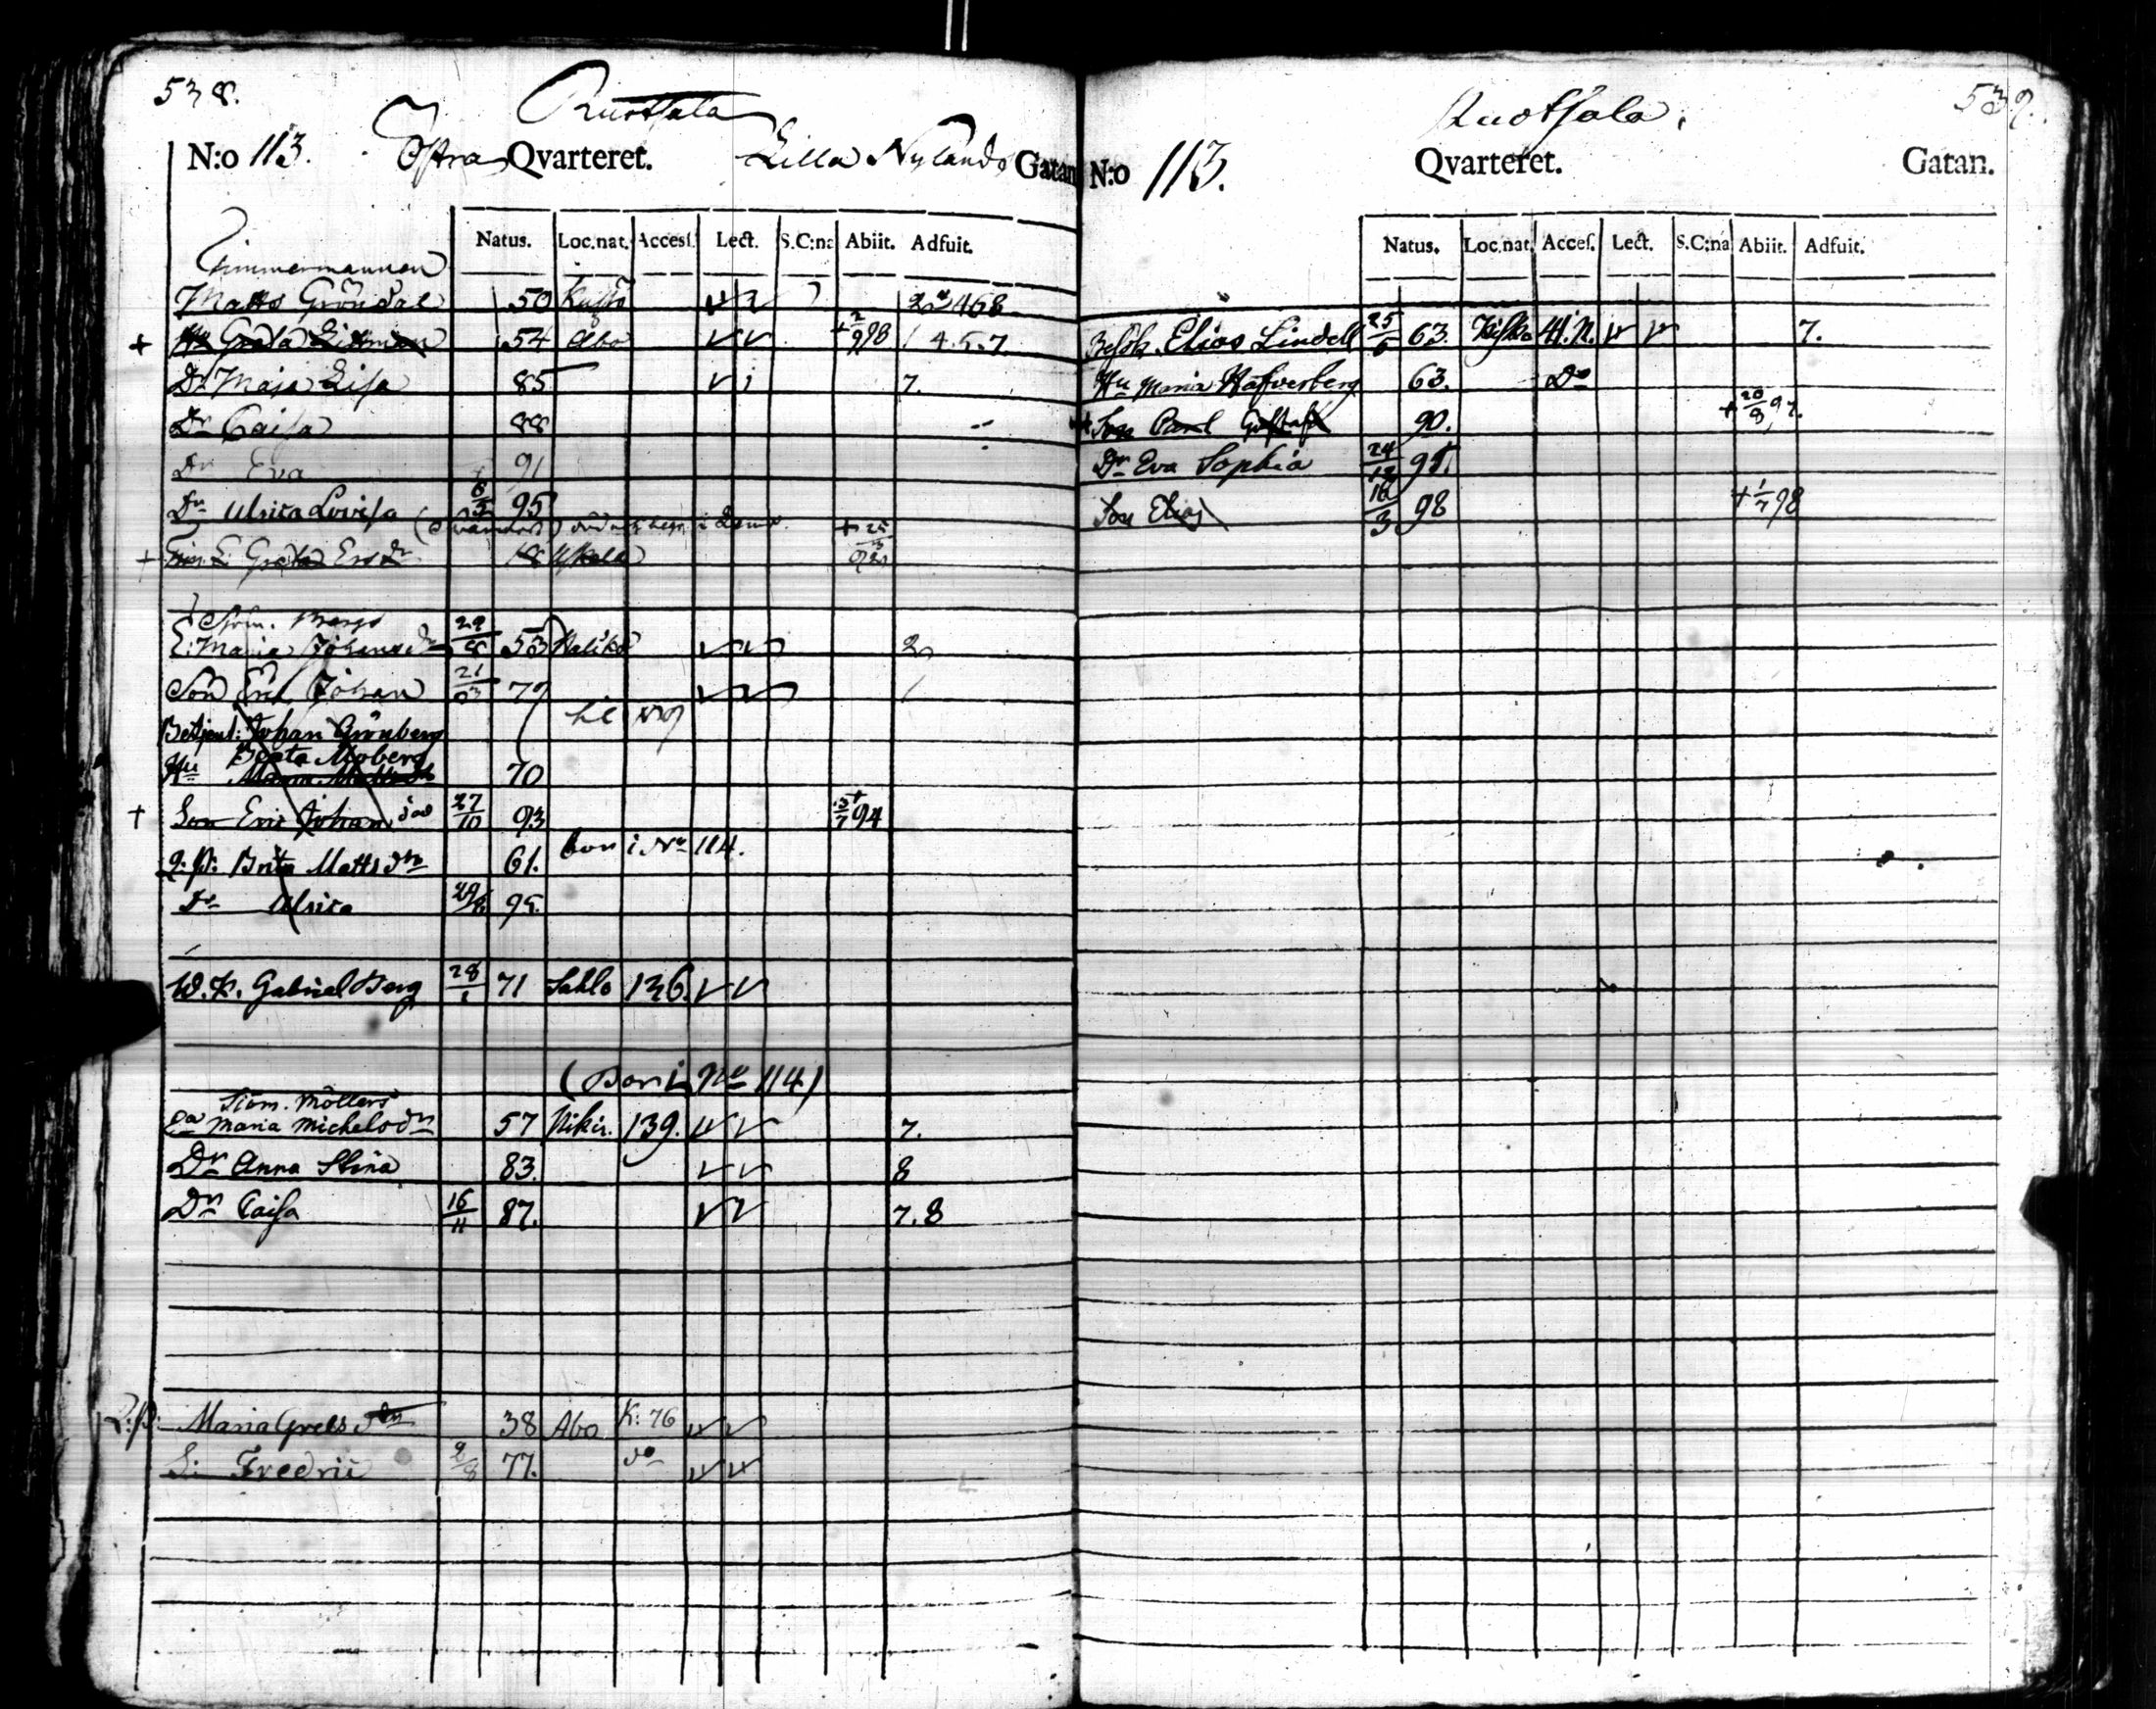 538.
Ruotsala
N:o 113. Östra Qvarteret. Lilla Nylands Gatan
Natus. Loc.nat. Accesſ. Lect. S.C:na Abiit. Adfuit.
Timmermannen
Matts Gröndal 50 Kustö 468
+ Hu Greta 54 Abo + 2/2 98 4.5.7.
Dr Maja Lisa 85 7.
Dr Caisa 88
Dr Eva 91
Dr Ulrica Lovisa 95
+ Greta Ersdr Uskela + 25/3
Sjöm. Bergs
E: Maria Johansdr 29/8 53 Haliko 2
Son Eric Johan 21/03 79
Betjent: Johan Grönberg
Beata Moberg
Hu 70
+ Son Eric Johan död 27/10 93 + 94
bor i No 114.
Q: P: Brita Mattsdr 61.
Dr Ulrica 95.
W. K. Gabriel Berg 28/1 71 Sahlo 136.
(Bor i No 114)
Siöm. Möllers
Ea Maria Michelsdr 57 Nikir. 139. 7.
Dr Anna Stina 83. 8
Dr Caisa 16/11 87. 7.8
Q: P: Maria Grelsdr 38 Abo K: 76
S: Fredric 2/8 77. do
539.
Ruotsala.
N:o 113. Qvarteret. Gatan.
Natus. Loc.nat. Acceſ. Lect. S.C:na Abiit. Adfuit.
Besök. Elias Lindell 25/6 63. Kisko 7.
Hu Maria Hafverberg 63. Do
+ Son Carl Gustaf 90. + 20/8 97.
Dr Eva Sophia 24/12 95.
Son Elias 16/3 98 + 1/7 98